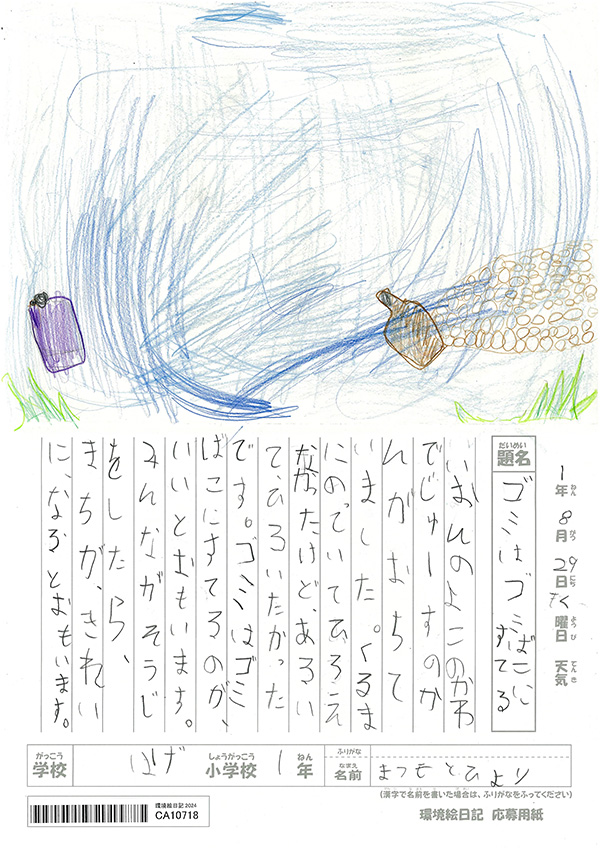 1年 8月 29日 もく曜日 天気
ねん がつ にち ようび てんき
だいめい
題名
ゴミはゴミばこに
すてる
いおんのよこのかわ
でじゅーすのか
んがおちて
いました。くるま
にのっていてひろえ
なかったけど、あるい
て、ひろいたかった
です。ゴミはゴミ
ばこにすてるのが、
いいとおもいます。
みんながそうじ
をしたら、
まちが、きれい
に、なるとおもいます。
がっこう しょうがっこう ねん
学校 はげ 小学校 1年
ふりがな
なまえ
名前 まつもとひより
(漢字で名前を書いた場合は、ふりがなをふってください)
環境絵日記2024
CA10718
環境絵日記 応募用紙